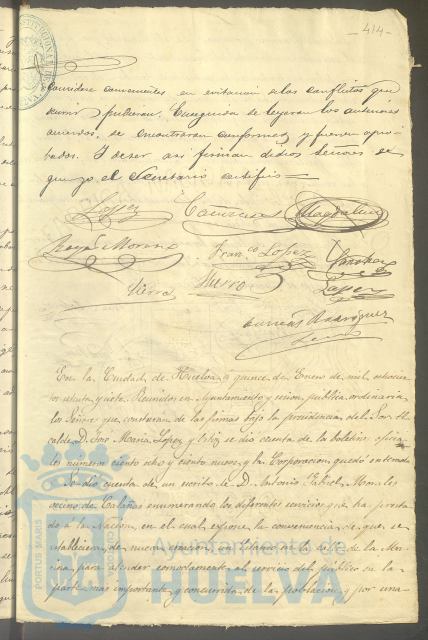 - 414 -
considere convenientes en evitacion de los conflictos que
ocurrir pudieran. Enseguida se leyeron los anteriores
acuerdos, se encontraron conformes y fueron apro-
bados. Y de ser asi firman dichos Señores de
que yo el Secretario certifico =
Lopez Magdalena
Moreno Fran.co Lopez
Hierro
Rodriguez
En la Ciudad de Huelva á quince de Enero de mil ochocien
tos ochenta y siete. Reunidos en Ayuntamiento y sesion publica ordinaria
los Señores que constaran de las firmas bajo la presidencia del Señor Al
calde D. José Maria Lopez y Ortiz se dio cuenta de los boletines oficia
les numeros ciento ocho y ciento nueve, y la Corporacion quedó enterada
Se dio cuenta de un escrito de D. Antonio Gabriel Morales
vecino de Calañas enumerando los diferentes servicios que ha presta
do á la Nacion, en el cual expone la conveniencia de que se
establezca de nueva creacion un Estanco en la calle de la Ma
rina para atender comodamente al servicio del publico en la
parte mas importante y concurrida de la poblacion, y por una
PORTUS MARIS
Ayuntamiento de
HUELVA